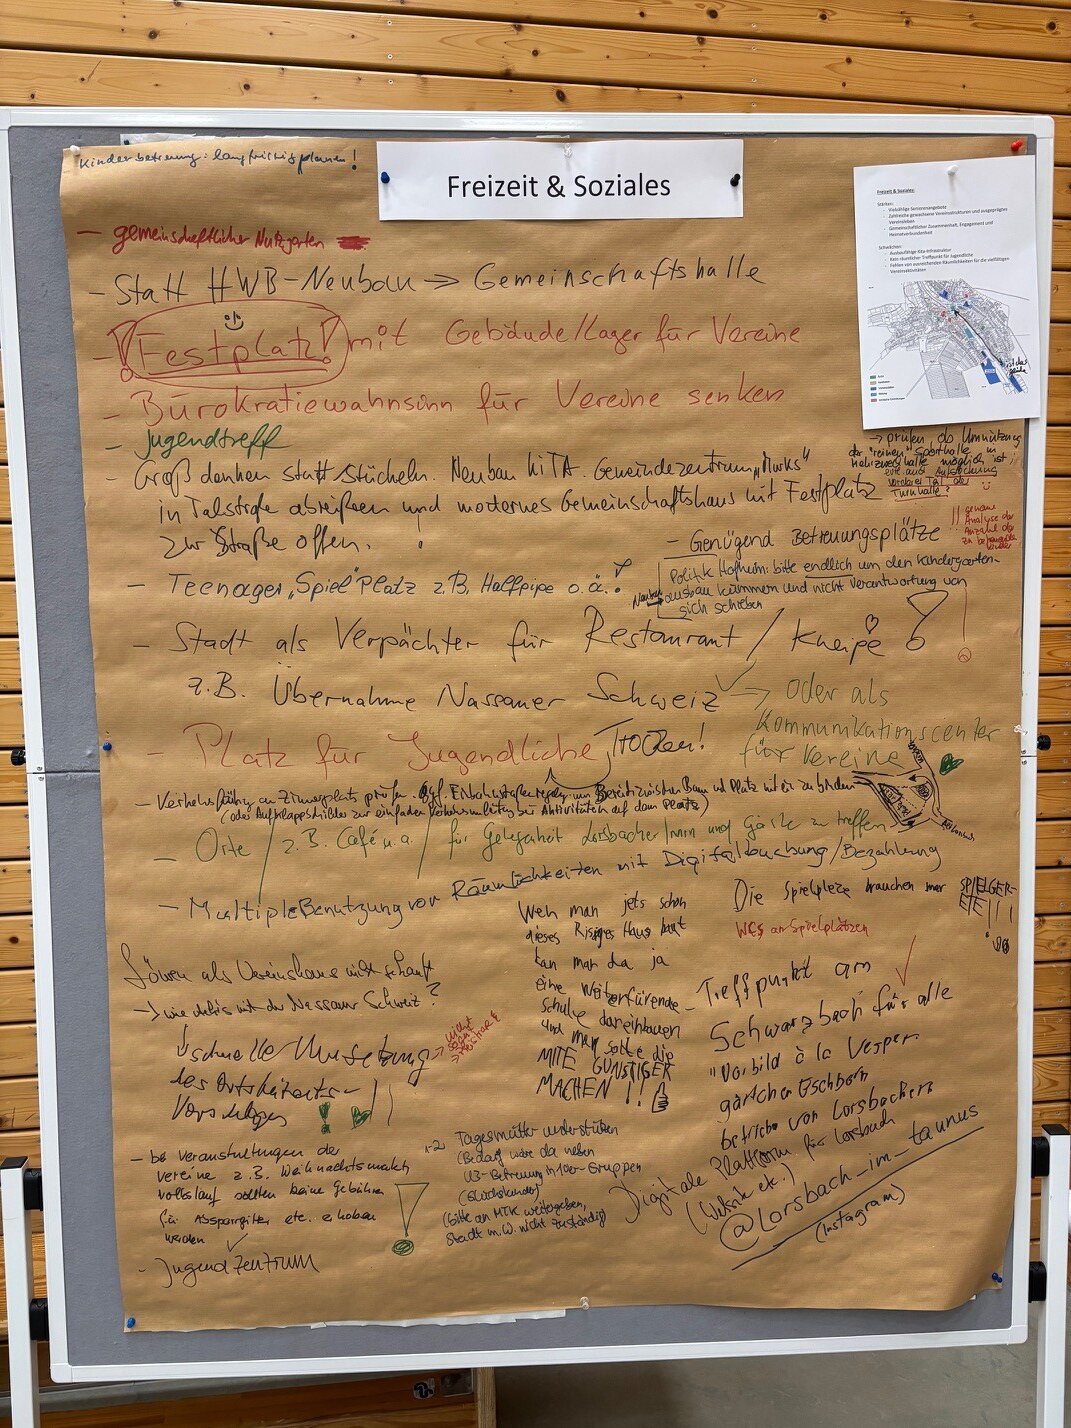 Kinderbetreuung: langfristig planen!
Freizeit & Soziales
Freizeit & Soziales:
Stärken:
- Vielfältige Seniorenangebote
- Zahlreiche gewachsene Vereinsstrukturen und ausgeprägtes
Vereinsleben
- Gemeinschaftlicher Zusammenhalt, Engagement und
Heimatverbundenheit
Schwächen:
- Ausbaufähige Kita-Infrastruktur
- Kein räumlicher Treffpunkt für Jugendliche
- Fehlen von ausreichenden Räumlichkeiten für die vielfältigen
Vereinsaktivitäten
- gemeinschaftlicher Nutzgarten
- Statt HWB-Neubau => Gemeinschaftshalle
- Festplatz! mit Gebäude/Lager für Vereine
- Bürokratiewahnsinn für Vereine senken
- Jugendtreff
→ prüfen ob Umnutzung
der "reinen" Sporthalle in
Mehrzweckhalle möglich ist
Turnhalle?
- Groß denken statt Stückeln. Neubau KiTA. Gemeindezentrum
in Talstraße abreißen und modernes Gemeinschaftshaus mit Festplatz
zur Straße offen.
- Genügend Betreuungsplätze
!! genaue
Analyse der
Anzahl der
zu betreuenden
Kinder
Politik Hofheim: bitte endlich um den Kindergarten-
ausbau kümmern und nicht Verantwortung von
sich schieben
- Teenager "Spiel"Platz z.B. Halfpipe o.ä.
- Stadt als Verpächter für Restaurant / Kneipe
z.B. Übernahme Nassauer Schweiz → oder als
Kommunikationscenter
für Vereine
- Platz für Jugendliche Trocken!
(oder Aufklappschilder zur einfachen Verkehrsumleitung bei Aktivitäten auf dem Platz)
- Orte / z.B. Café u.a / für Gelegenheit Lorsbacher/innen und Gäste zu treffen
- Multiple Benutzung von Räumlichkeiten mit Digitalbuchung/Bezahlung
Wen man jets schon
dieses Risiges Haus baut
kan man da ja
eine Weiterfürende
schule dareinbauen
und man solte die
MITE GÜNSTIGER
MACHEN!!
Die Spielpleze brauchen mer SPIELGER-
ETE!!!
WCs an Spielplätzen
Löwen als Vereinshaus nicht gekauft
→ wie steht's mit der Nassauer Schweiz?
schnelle Umsetzung
des Ortsbeirats-
Vorschlages
- Treffpunkt am
Schwarzbach für alle
"Vorbild à la Vesper-
gärtchen Eschborn
betrieb von Lorsbachern
- bei Veranstaltungen der
Vereine z.B. Weihnachtsmarkt,
Volkslauf sollten keine Gebühren
für Absperrgitter etc. erhoben
werden
- Jugendzentrum
Tagesmütter unterstützen
(Bedarf wäre da neben
U3-Betreuung in 10er-Gruppen
(Glückskinder)
(bitte an MTK weitergeben,
Stadt m.W. nicht zuständig)
Digitale Plattform für Lorsbach
(Website etc.)
@Lorsbach_im_taunus
(Instagram)